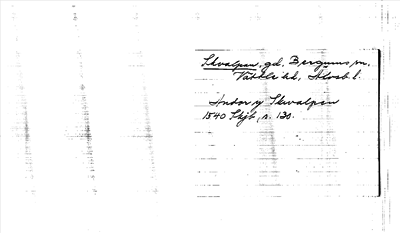 Skvalpen, gd, Bergums sn,
Vättle hd, Älvsb l.
Andor y Skvalpen
1540 Skjb, s. 130.